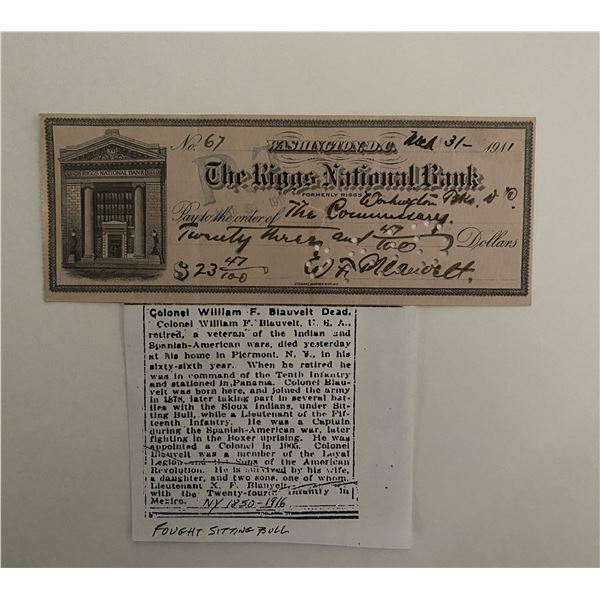 No. 67 WASHINGTON, D.C. Mch 31- 1911
RIGGS NATIONAL BANK
The Riggs National Bank
FORMERLY RIGGS
Washington Bks. D.C.
Pay to the order of The Commissary.
Twenty three and 47/100 Dollars
$ 23 47/100 W. F. Blauvelt.
Colonel William F. Blauvelt Dead.
Colonel William F. Blauvelt, U. S. A.,
retired, a veteran of the Indian and
Spanish-American wars, died yesterday
at his home in Piermont, N. Y., in his
sixty-sixth year. When he retired he
was in command of the Tenth Infantry
and stationed in Panama. Colonel Blau-
velt was born here, and joined the army
in 1878, later taking part in several bat-
tles with the Sioux Indians, under Sit-
ting Bull, while a Lieutenant of the Fif-
teenth Infantry. He was a Captain
during the Spanish-American war, later
fighting in the Boxer uprising. He was
appointed a Colonel in 1905. Colonel
Blauvelt was a member of the Loyal
Legion and the Sons of the American
Revolution. He is survived by his wife,
a daughter, and two sons, one of whom,
Lieutenant X. F. Blauvelt,
with the Twenty-fourth Infantry in
Mexico. NY 1850-1916
FOUGHT SITTING BULL